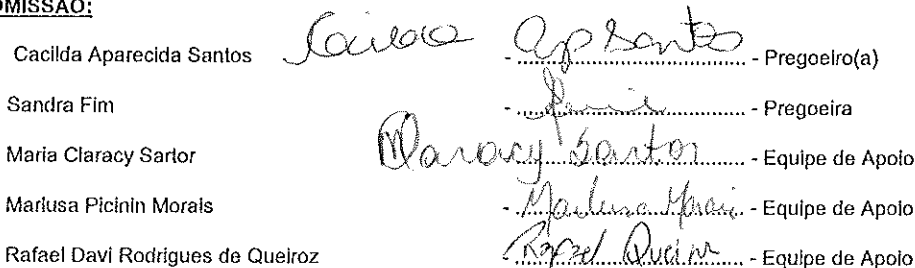 OMISSÃO:
Cacilda Aparecida Santos Cacilda Ap Santos - ........................ - Pregoeiro(a)
Sandra Fim - ........................ - Pregoeira
Maria Claracy Sartor M Claracy Sartor ........................ - Equipe de Apoio
Marlusa Picinin Morais - Marlusa Morais ........................ - Equipe de Apoio
Rafael Davi Rodrigues de Queiroz - Rafael Queiroz ........................ - Equipe de Apoio